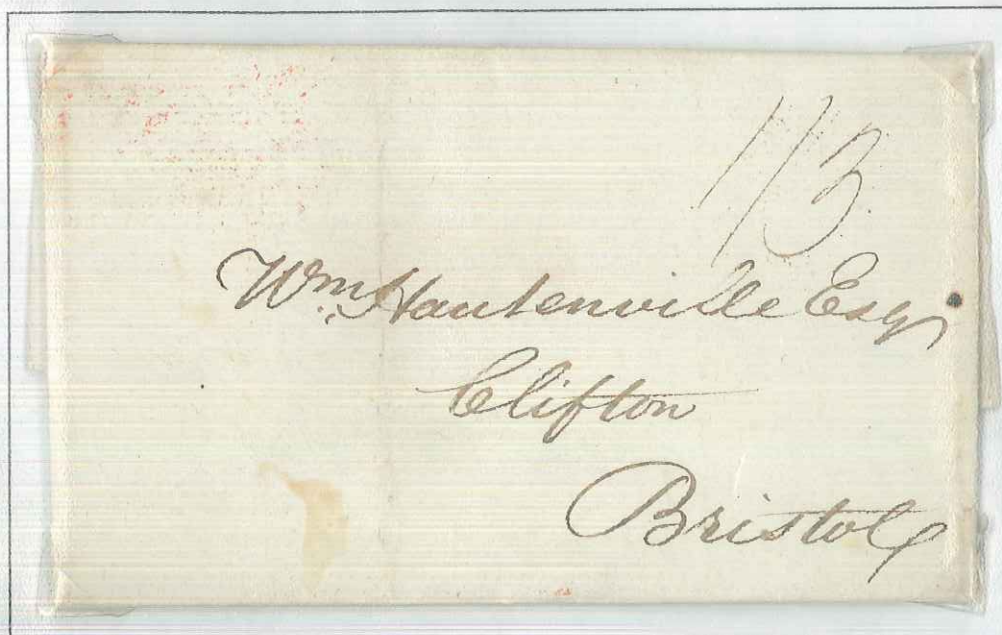 1/3
Wm. Hautenville Esqr
Clifton
Bristol